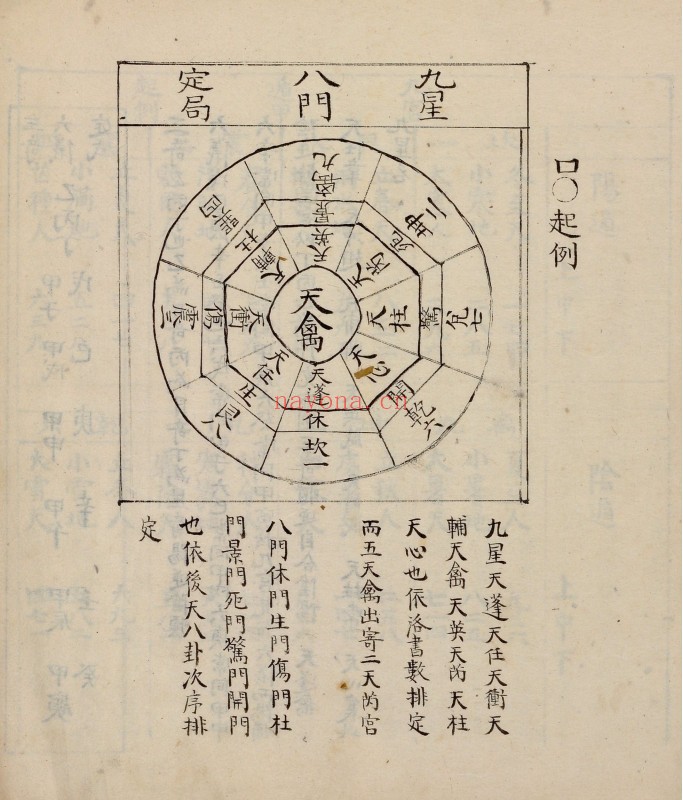 口〇起例
九星
八門
定局
天禽
離九
景
天英
坤二
死
天芮
兌七
驚
天柱
乾六
開
天心
坎一
休
天蓬
艮八
生
天任
震三
傷
天衝
巽四
杜
天輔
nayona.cn
九星天蓬天任天衝天
輔天禽天英天芮天柱
天心也依洛書數排定
而五天禽出寄二天芮宮
八門休門生門傷門杜
門景門死門驚門開門
也依後天八卦次序排
定